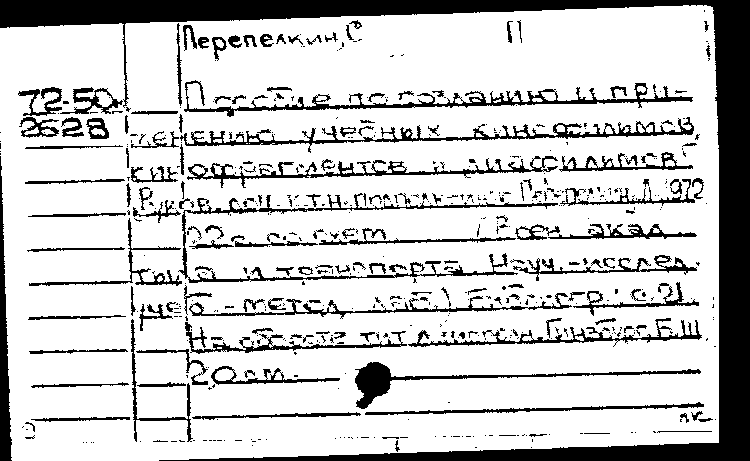 Перепелкин, С П
72-50
2628
Пособие по созданию и при-
менению учебных кинофильмов,
кинофрагментов и диафильмов
Руков. доц. к.т.н. Перепелкин Л., 1972
22 с. со схем. (Воен. акад.
тыла и транспорта. Науч.-исслед.
учеб-метод. лаб.) Библиогр: с. 21.
На обороте тит. л. Гинзбург, Б.Ш
20 см.